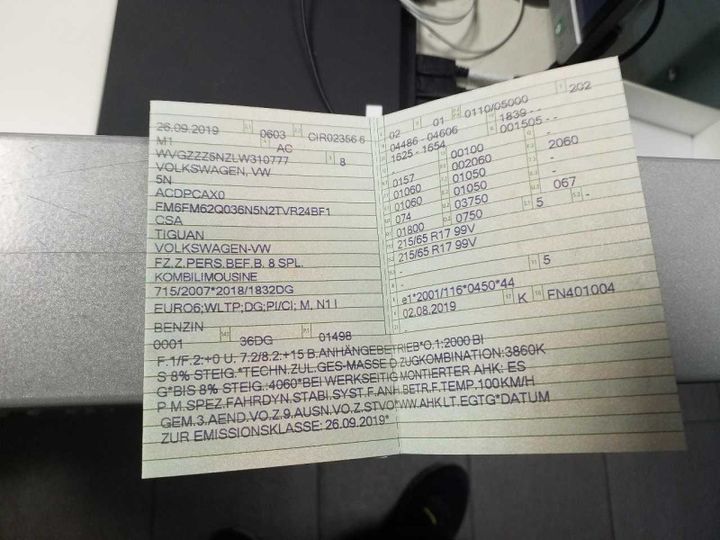 26.09.2019 0603 CIR02356 6
M1 AC
WVGZZZ5NZLW310777 8
VOLKSWAGEN, VW
5N
ACDPCAX0
FM6FM62Q036N5N2TVR24BF1
CSA
TIGUAN
VOLKSWAGEN-VW
FZ.Z.PERS.BEF.B. 8 SPL.
KOMBILIMOUSINE
715/2007*2018/1832DG
EURO6;WLTP;DG;PI/CI; M, N1 I
BENZIN
0001 36DG 01498
02 01 0110/05000 202
04486 - 04606 1839 - -
1525 - 1654 001505 - -
- 00100
0157 002060 2060
01060 01050 -
01060 01050 -
074 03750 067
01800 0750 5 -
215/65 R17 99V
215/65 R17 99V
-
-
- 5
e1*2001/116*0450*44
02.08.2019 K FN401004
F.1/F.2:+0 U. 7.2/8.2:+15 B.ANHÄNGEBETRIEB*O.1:2000 BI
S 8% STEIG.*TECHN.ZUL.GES-MASSE D.ZUGKOMBINATION:3860K
G*BIS 8% STEIG.:4060*BEI WERKSEITIG MONTIERTER AHK: ES
P M.SPEZ.FAHRDYN.STABI.SYST.F.ANH.BETR.F.TEMP.100KM/H
GEM.3.AEND.VO.Z.9.AUSN.VO.Z.STVO*WW.AHK LT.EGTG*DATUM
ZUR EMISSIONSKLASSE: 26.09.2019*